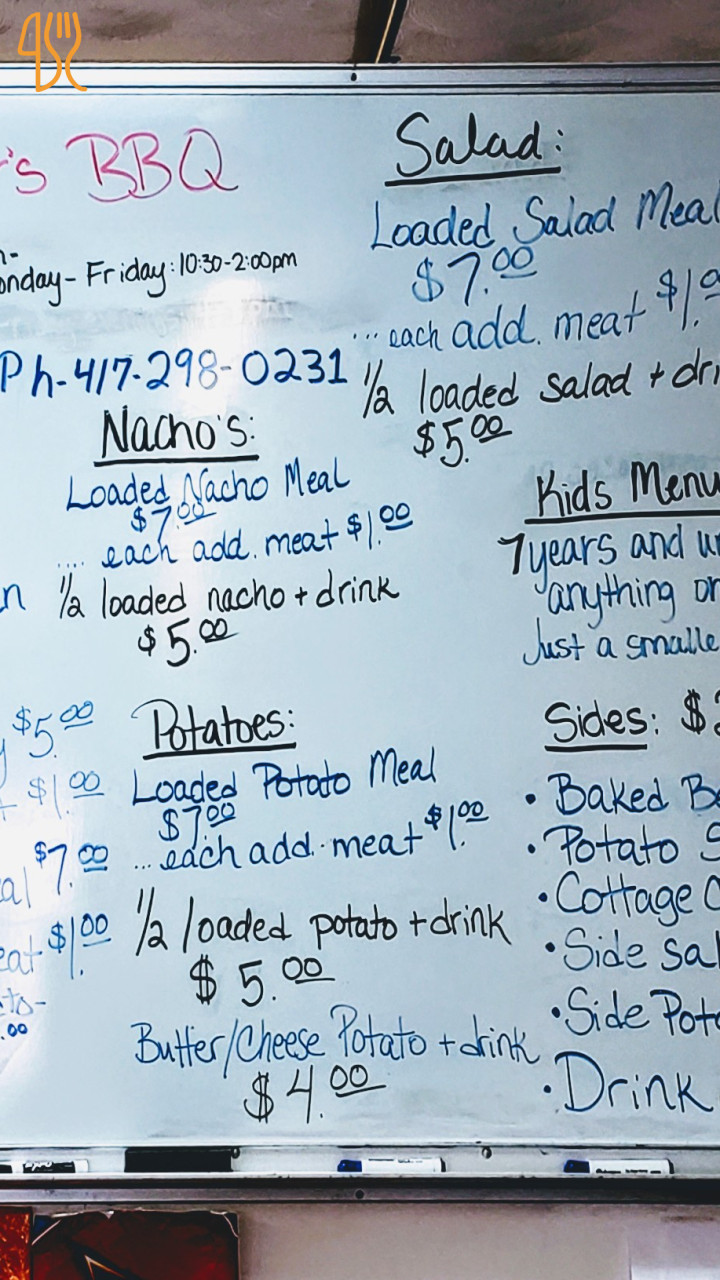 's BBQ
onday - Friday: 10:30-2:00pm
Ph-417-298-0231
Nacho's:
Loaded Nacho Meal
$7.00
.... each add. meat $1.00
1/2 loaded nacho + drink
$5.00
$5.00
$1.00
$7.00
$1.00
.00
Potatoes:
Loaded Potato Meal
$7.00
... each add. meat $1.00
1/2 loaded potato + drink
$5.00
Butter/Cheese Potato + drink
$4.00
Salad:
Loaded Salad Meal
$7.00
... each add. meat $1.0
1/2 loaded salad + dri
$5.00
Kids Menu
7 years and u
anything o
Just a smalle
Sides: $
• Baked Be
• Potato S
• Cottage C
• Side sal
• Side Pota
• Drink